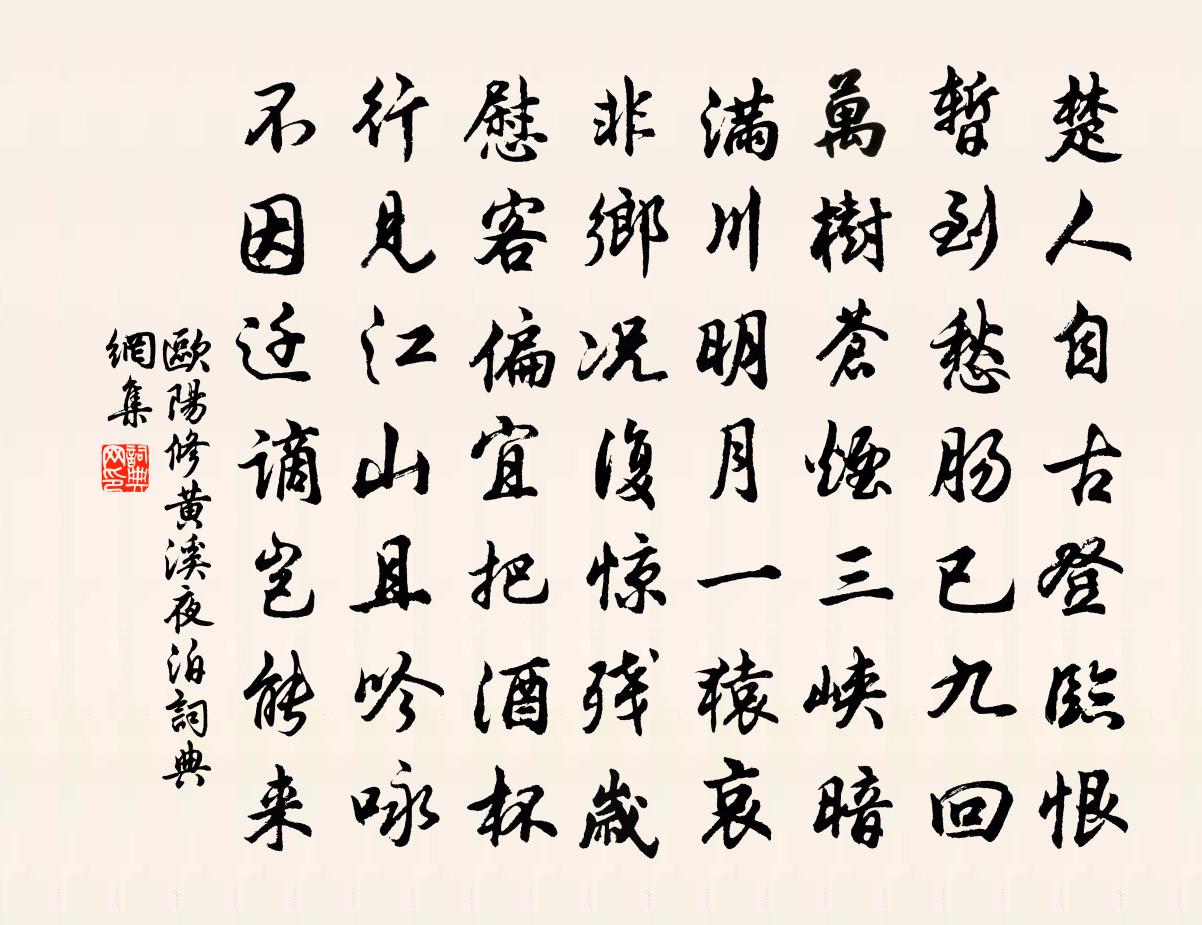 楚人自古登臨恨
暫到愁肠已九回
萬樹蒼煙三峡暗
滿川明月一猿哀
非鄉况復惊残歲
慰客偏宜把酒杯
行見江山且吟咏
不因迁謫豈能来
歐陽修黄溪夜泊詞典
網集
詞典
网印